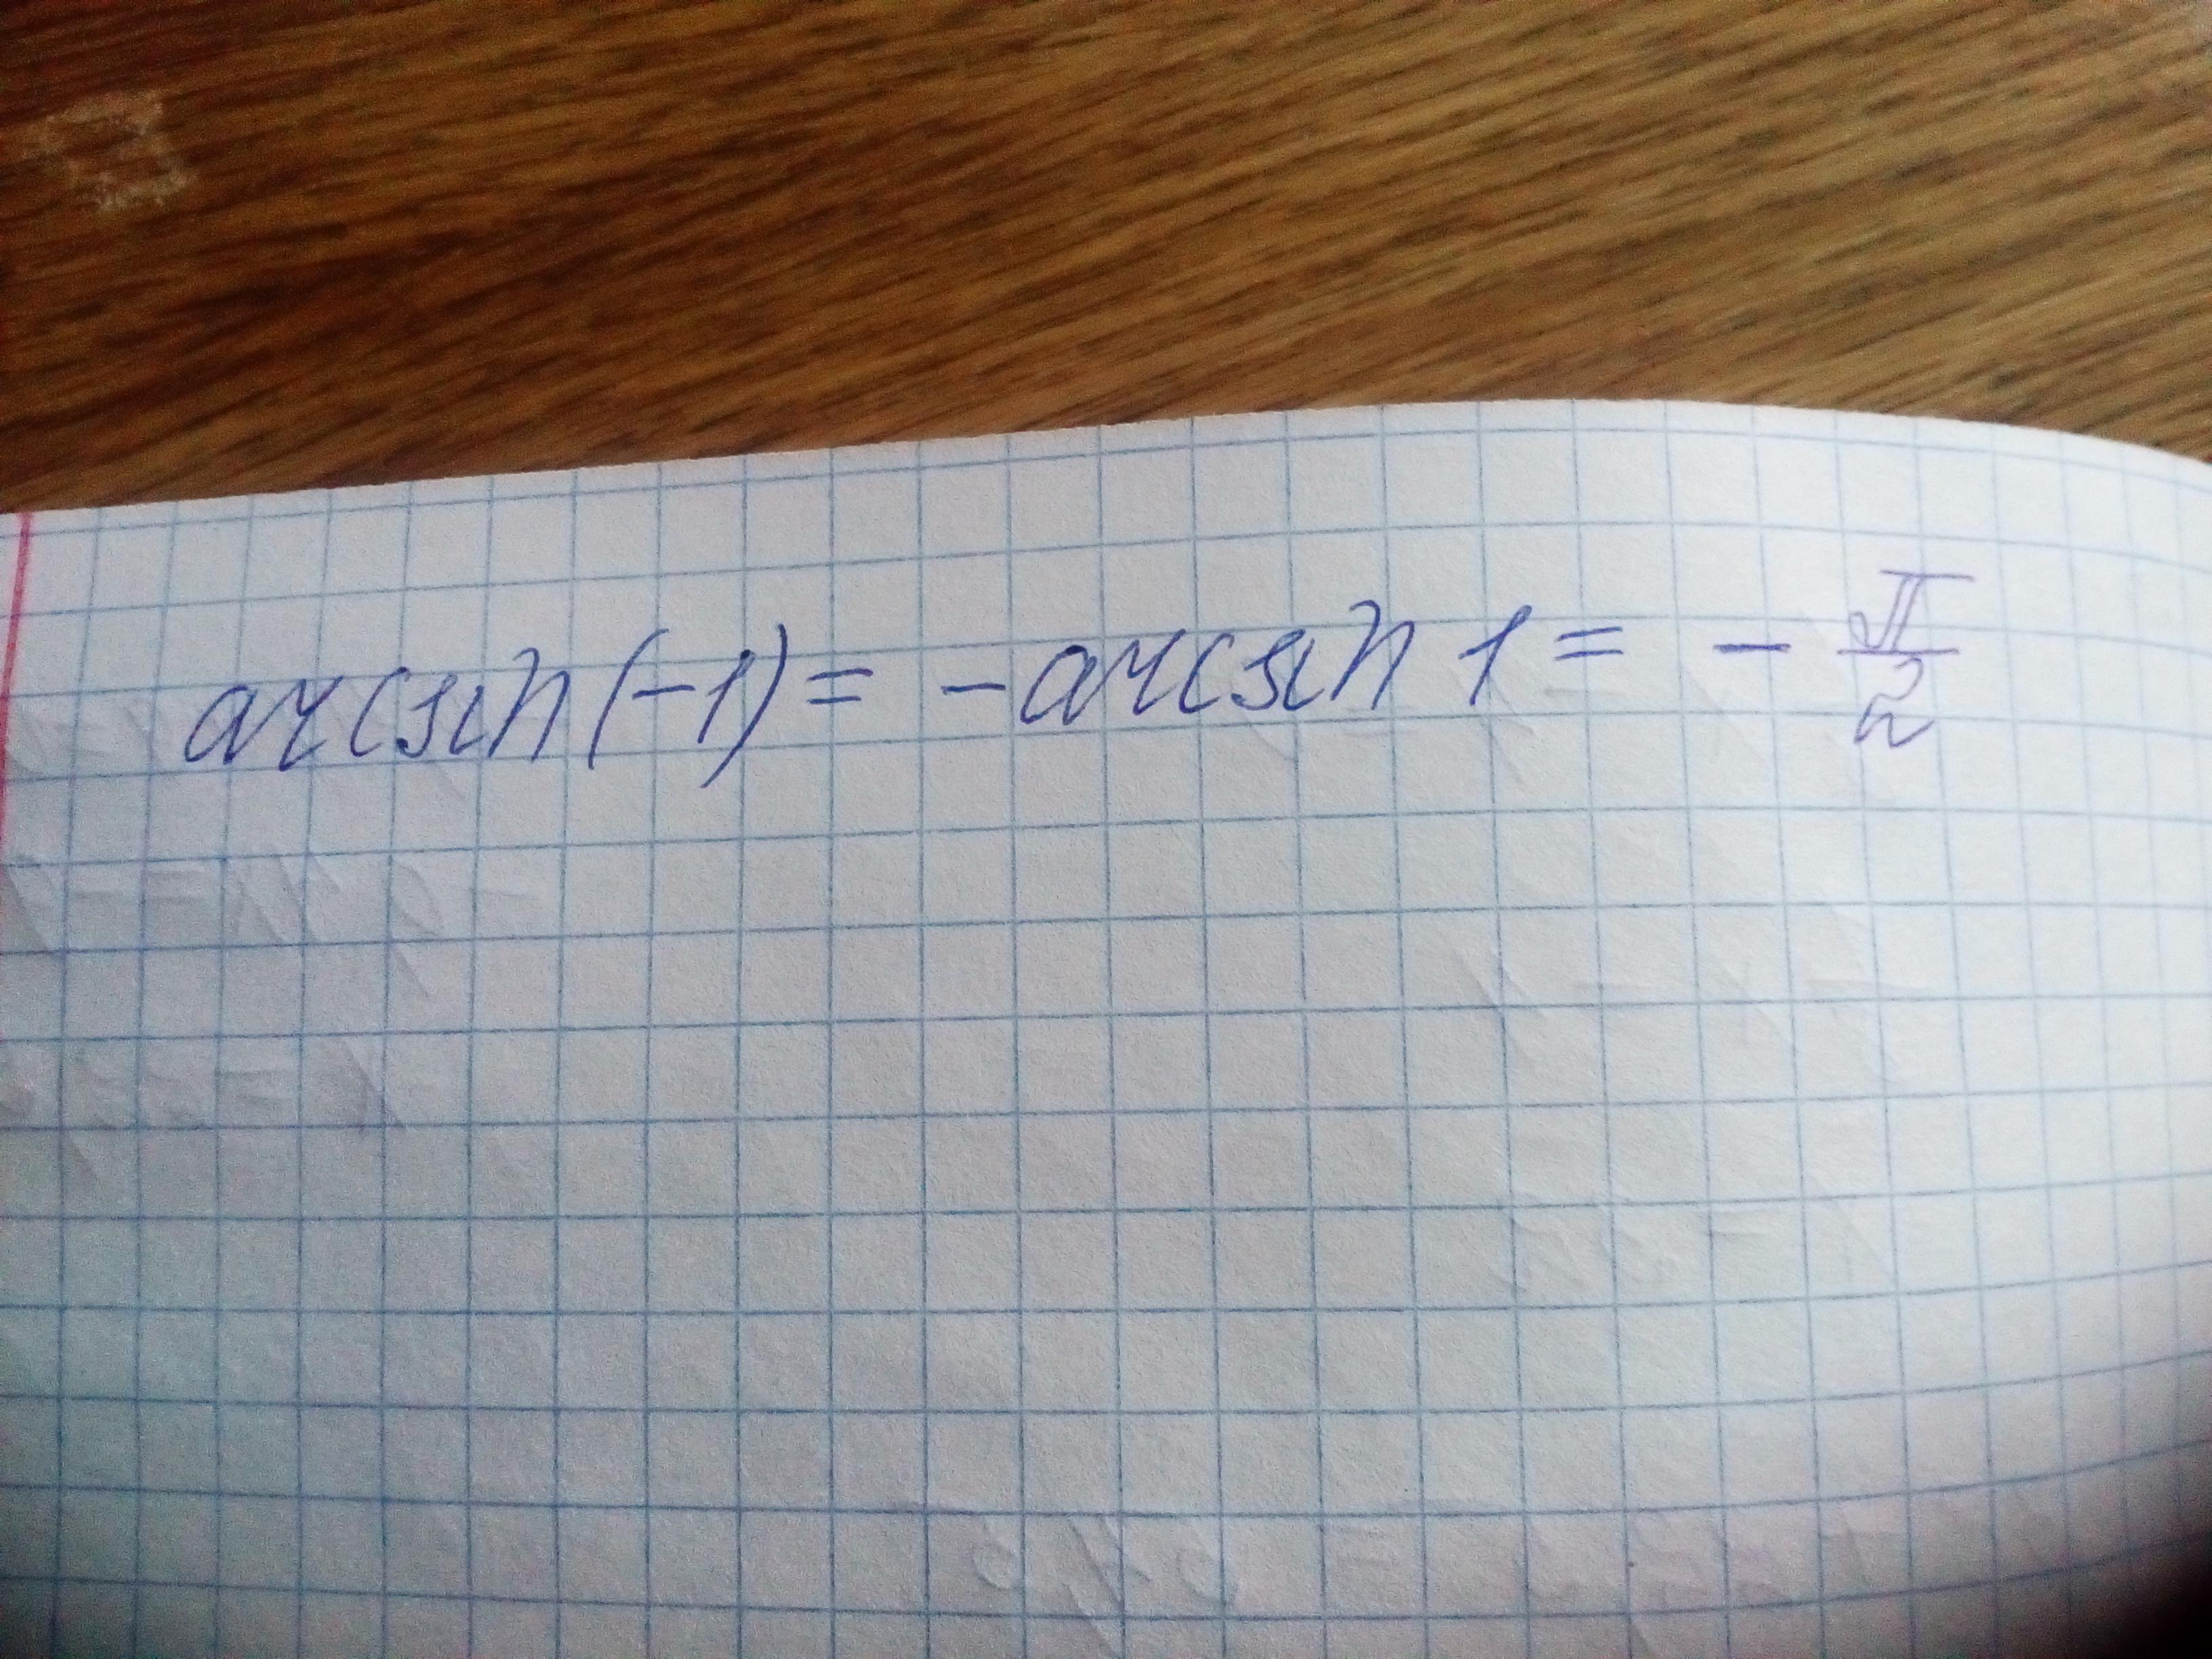 arcsin(-1) = -arcsin 1 = - π/2